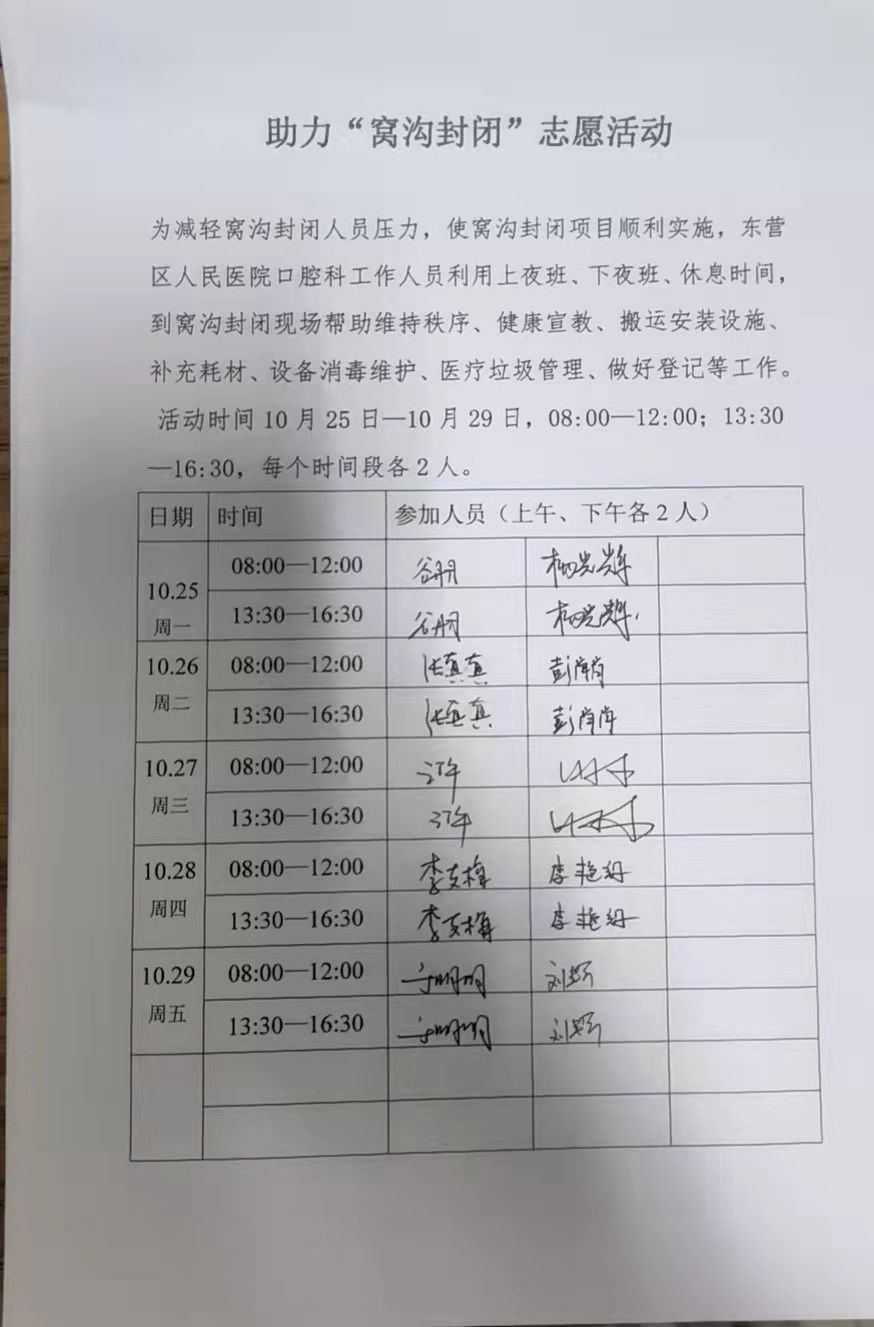 助力“窝沟封闭”志愿活动
为减轻窝沟封闭人员压力，使窝沟封闭项目顺利实施，东营
区人民医院口腔科工作人员利用上夜班、下夜班、休息时间，
到窝沟封闭现场帮助维持秩序、健康宣教、搬运安装设施、
补充耗材、设备消毒维护、医疗垃圾管理、做好登记等工作。
活动时间 10 月 25 日—10 月 29 日，08:00—12:00；13:30
—16:30，每个时间段各 2 人。
日期 时间 参加人员（上午、下午各 2 人）
10.25
周一
08:00—12:00
13:30—16:30
10.26
周二
08:00—12:00 张真真
13:30—16:30 张真真
10.27
周三
08:00—12:00
13:30—16:30
10.28
周四
08:00—12:00
13:30—16:30
10.29
周五
08:00—12:00
13:30—16:30